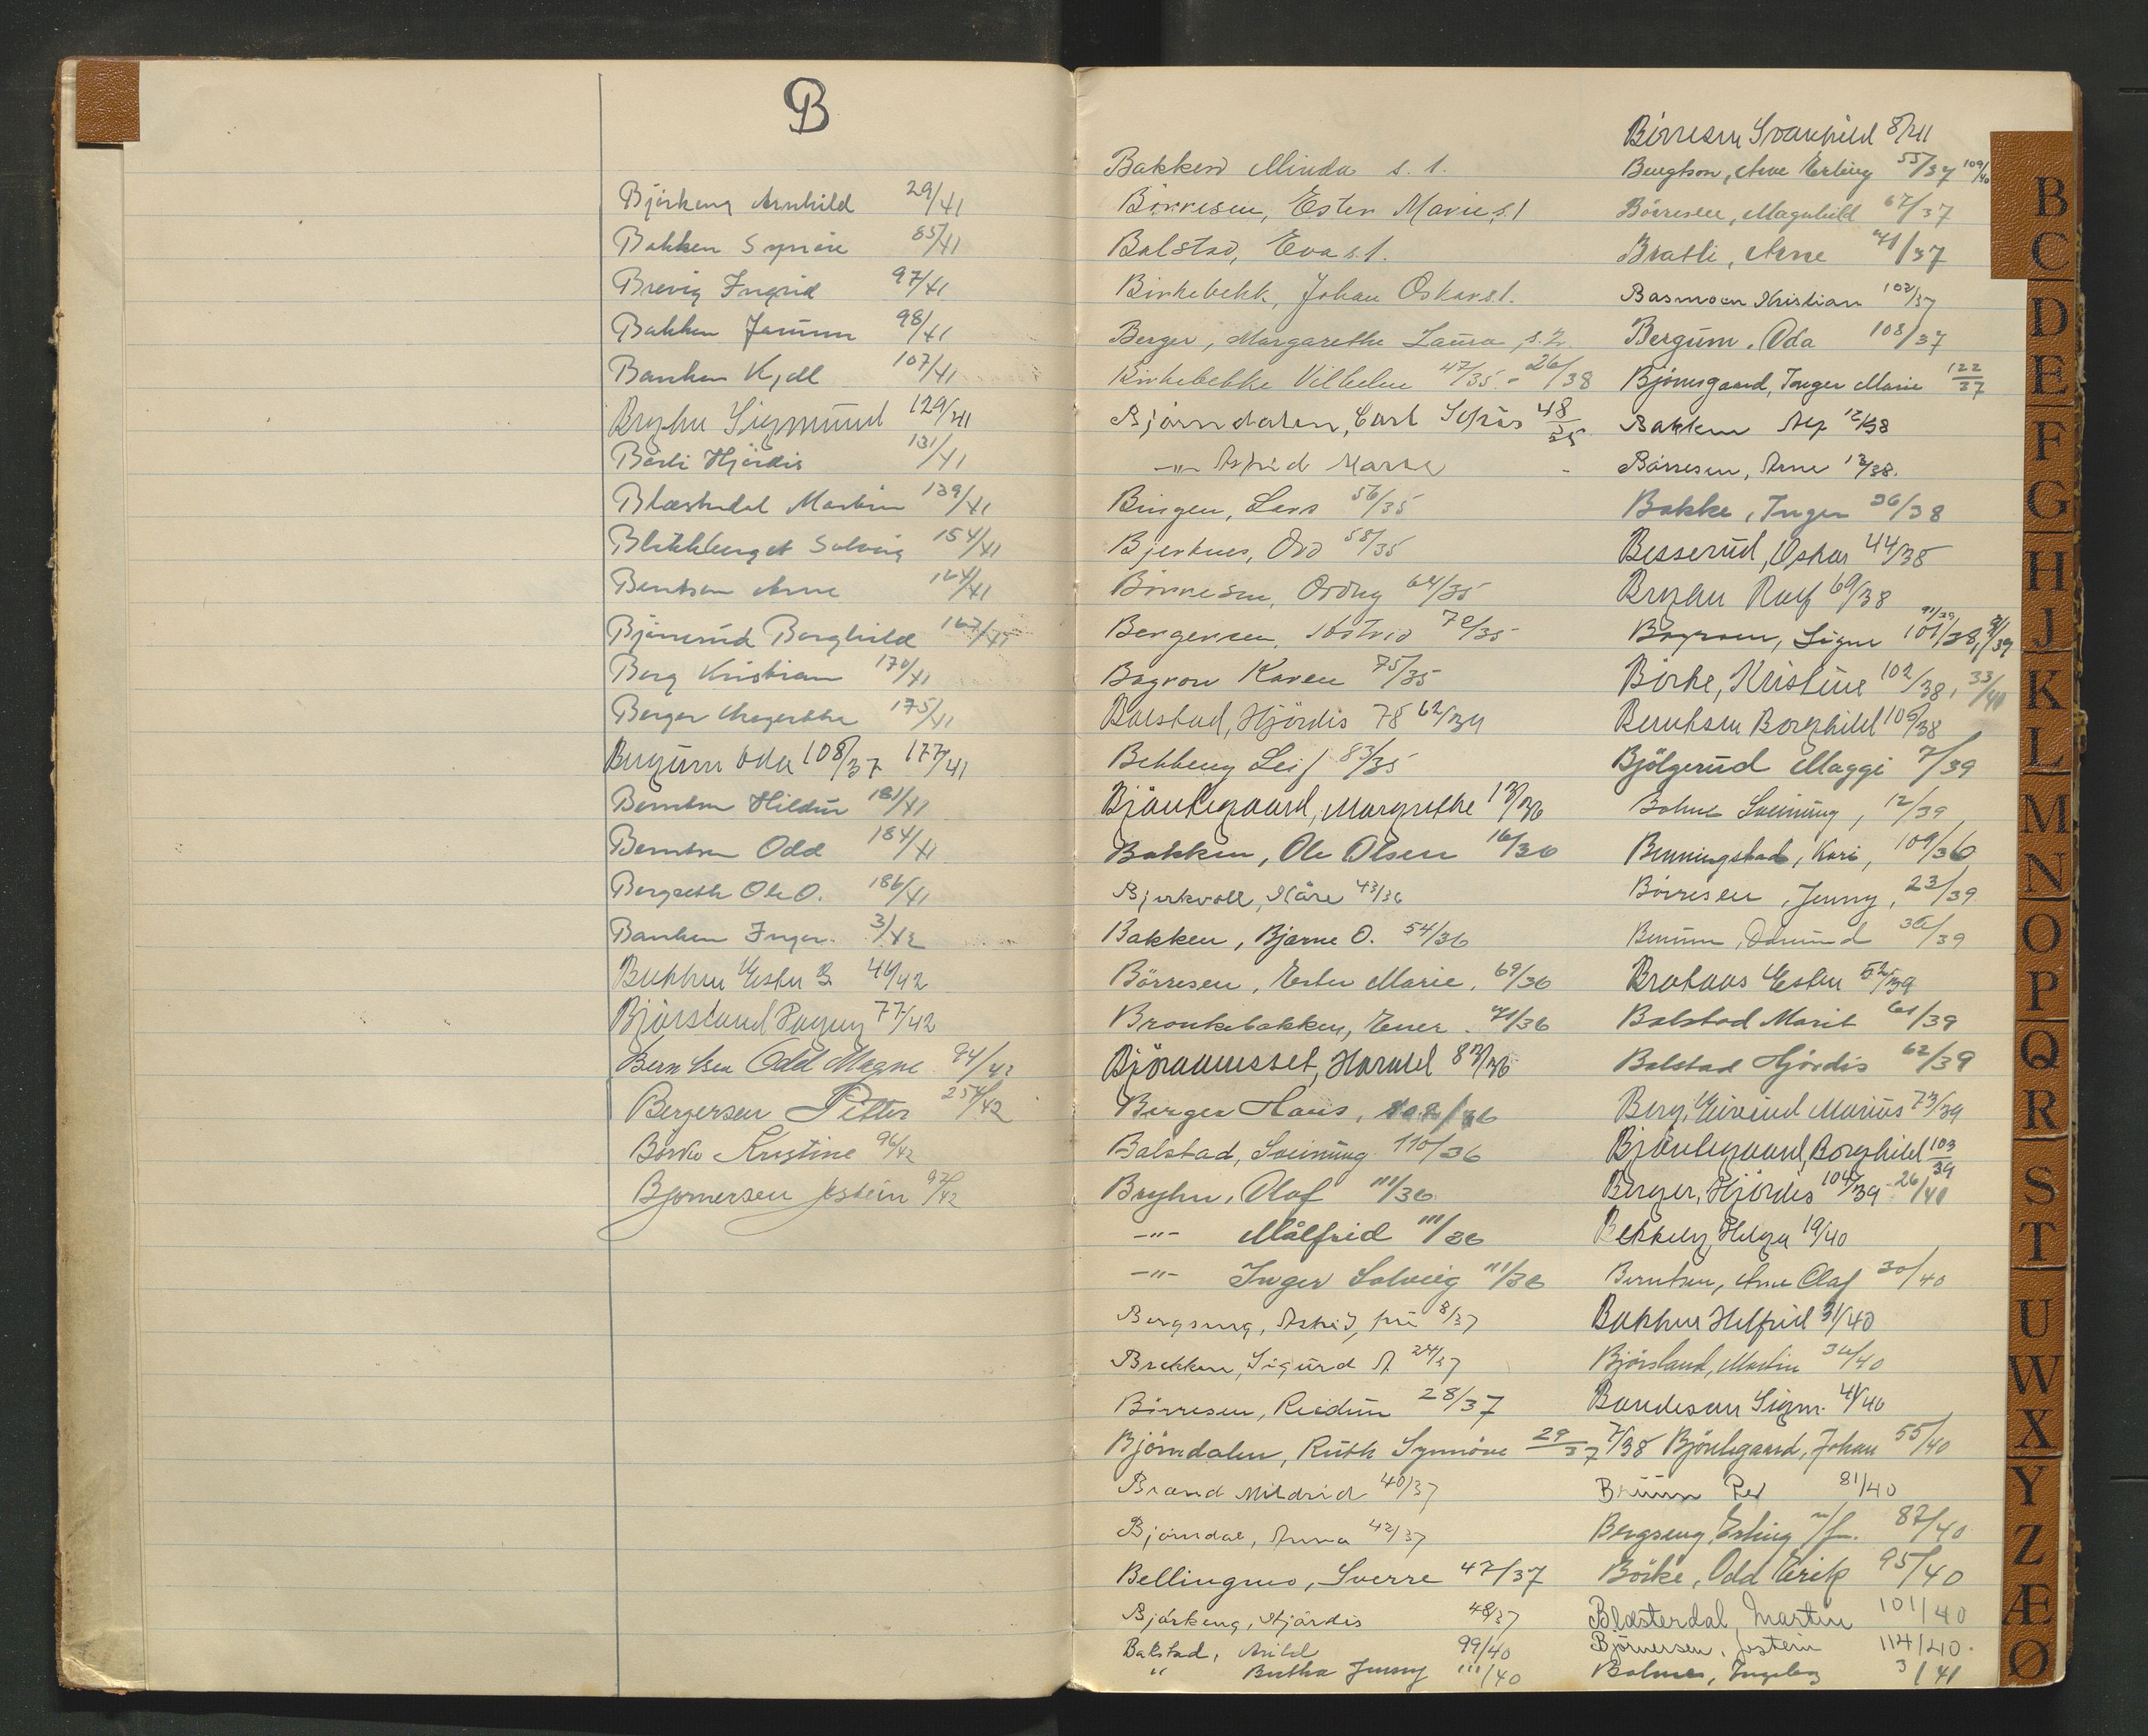 B
Björkeng Arnhild 29/41
Bakken Synöve 85/41
Brevig Ingrid 97/41
Bakken Jorunn 98/41
Banken Kjell 107/41
Bryhn Sigmund 129/41
Börli Hjördis 131/41
Blæsterdal Martin 139/41
Blikkberget Solveig 154/41
Berntsen Arne 164/41
Björnerud Borghild 167/41
Berg Kristian 170/41
Berger Margrethe 175/41
Bergum Oda 108/37 177/41
Berntsen Hildur 181/41
Berntsen Odd 184/41
Bergseth Ole O. 186/41
Banken Inger 3/42
Bakken Ester B. 44/42
Björsland Dagny 77/42
Berntsen Odd Magne 94/42
Bergersen Petter 254/42
Börke Kristine 96/42
Bjørnersen Jostein 97/42
Bakken Minda s. 1.
Börresen, Ester Marie s.1
Balstad, Eva s.1.
Birkebekk, Johan Oskar s.1.
Berger, Margarethe Laura s.2.
Birkebekke Vilhelm 47/35 - 26/38
Björndalen, Carl Sofus 48/35
-"- Astrid Marie -
Bingen, Lars 56/35
Bjerknes, Odd 58/35
Börresen, Ordny 64/35
Bergersen, Astrid 72/35
Bogron Karen 75/35
Balstad, Hjördis 78 62/39
Bekkeng Leif 83/35
Björntegaard, Margrethe 13/36
Bakken, Ole Olsen 16/36
Bjerkvoll, Kåre 43/36
Bakken, Bjarne O. 54/36
Börresen, Ester Marie. 69/36
Bronkebakken, Ener. 71/36
Björnnesset, Harald 83/36
Berger Hans, 102/36
Balstad, Sveinung 110/36
Bryhn, Olaf 111/36
-"- Målfrid 111/36
-"- Inger Solveig 111/36
Bergseng, Astrid, fru 8/37
Brekken, Sigurd A. 24/37
Börresen, Reidun 28/37
Björndalen, Ruth Synnöve 29/37 7/38
Brand Mildrid 40/37
Björndal, Anna 42/37
Bellingmo, Sverre 47/37
Björkeng, Hjördis 48/37
Balstad, Arild 99/40
" Bertha Jenny 111/40
Börresen Svanhild 8/41
Bengtson, Arve Erling 55/37 109/40
Börresen, Magnhild 67/37
Bratli, Arne 71/37
Basmoen Kristian 102/37
Bergum, Oda 108/37
Björnsgaard, Inger Marie 122/37
Bakken Alf 12/38
Börresen, Arne 13/38.
Bakke, Inger 36/38
Besserud, Oskar 44/38
Bryhn Rolf 69/38
Bogron, Signe 101/38, 91/39
Börke, Kristine 102/38, 33/40
Berntsen Borghild 105/38
Bjölgerud Maggi 7/39
Bolme Sveinung, 12/39
Benningstad, Kari, 109/36
Börresen, Jenny, 23/39
Benum, Ommund 36/39
Brataas Ester 52/39
Balstad Marit 61/39
Balstad Hjördis 62/39
Berg, Eivind Marius 73/39
Björntegaard, Borghild 103/39
Berger, Hjördis 104/39 - 26/40
Bekkely, Helga 19/40
Berntsen, Arne Olaf 30/40
Bakken Helfrid 31/40
Björsland, Martin 34/40
Bondesen Sigm. 41/40
Björntegaard, Johan 55/40
Bruun Per 81/40
Bergseng, Erling m/fr. 87/40
Börke, Odd Erik 95/40
Blæsterdal Martin 101/40
Björnersen, Jostein 114/40.
Bolme, Ingeborg 3/41
B
C
D
E
F
G
H
J
K
L
M
N
O
P
Q
R
S
T
U
W
X
Y
Z
Æ
Ø